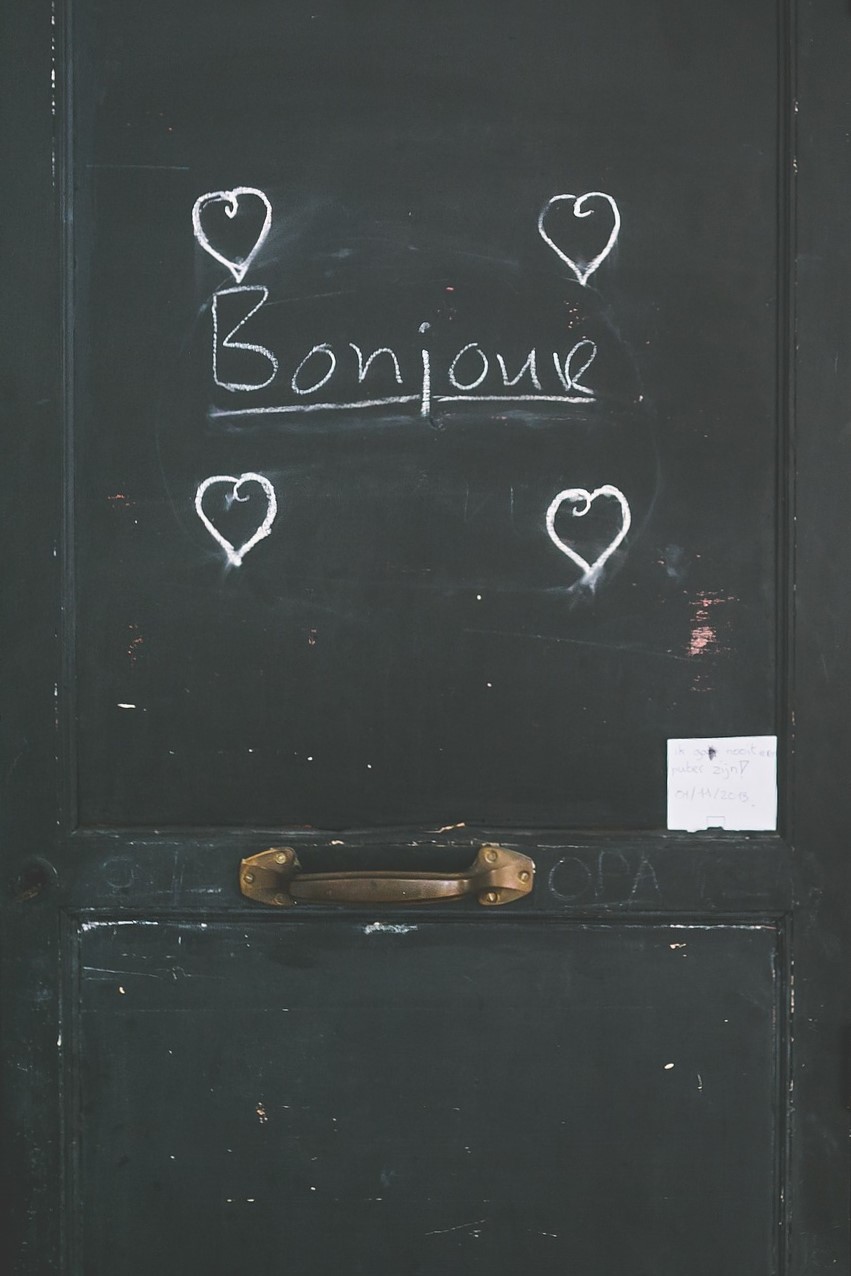 Bonjour
ik ga nooit een
puber zijn!
01/11/2013.
OPA